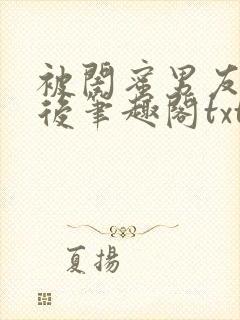 被閨蜜男友
後筆趣閣txt
夏揚